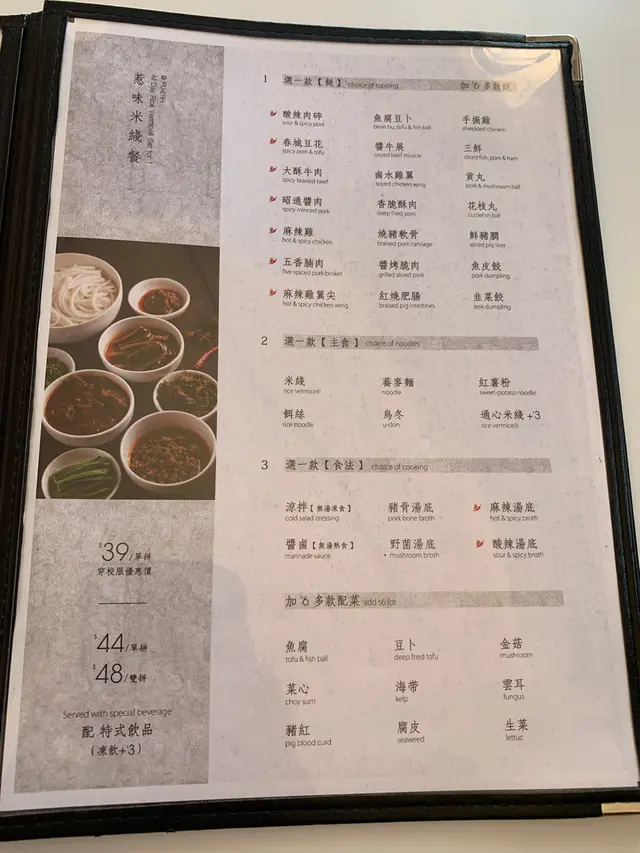 惹味米綫餐
1 選一款【餸】 choice of topping 加$6多款餸
酸辣肉碎 魚腐豆卜 手撕雞
sour & spicy pork bean bu, tofu & fish ball shredded chicken
春城豆花 醬牛展 三鮮
spicy pork & tofu soyed beef muscle sliced fish, pork & ham
大酥牛肉 鹵水雞翼 貢丸
spicy braised beef soyed chicken wing pork & mushroom ball
昭通醬肉 香脆酥肉 花枝丸
spicy minced pork deep fried pork cuttlefish ball
麻辣雞 燒豬軟骨 鮮豬膶
hot & spicy chicken braised pork cartilage sliced pig liver
五香腩肉 醬烤脆肉 魚皮餃
five spiced pork brisket grilled sliced pork pork dumpling
麻辣雞翼尖 紅燒肥腸 韭菜餃
hot & spicy chicken wing braised pig intestines leek dumpling
2 選一款【主食】 choice of noodles
米綫 蕎麥麵 紅薯粉
rice vermicelli noodle sweet-potato noodle
餌絲 烏冬 通心米綫+$3
rice noodle u-don rice vermicelli
3 選一款【食法】 choice of cooking
涼拌【無湯凍食】 豬骨湯底 麻辣湯底
cold salad dressing pork bone broth hot & spicy broth
醬鹵【無湯熱食】 野菌湯底 酸辣湯底
marinade sauce mushroom broth sour & spicy broth
加$6多款配菜 add $6 for
魚腐 豆卜 金菇
tofu & fish ball deep fried tofu mushroom
菜心 海帶 雲耳
choy sum kelp fungus
豬紅 腐皮 生菜
pig blood curd seaweed lettuc
$39/單拼
穿校服優惠價
$44/單拼
$48/雙拼
Served with special beverage
配 特式飲品
(凍飲+$3)